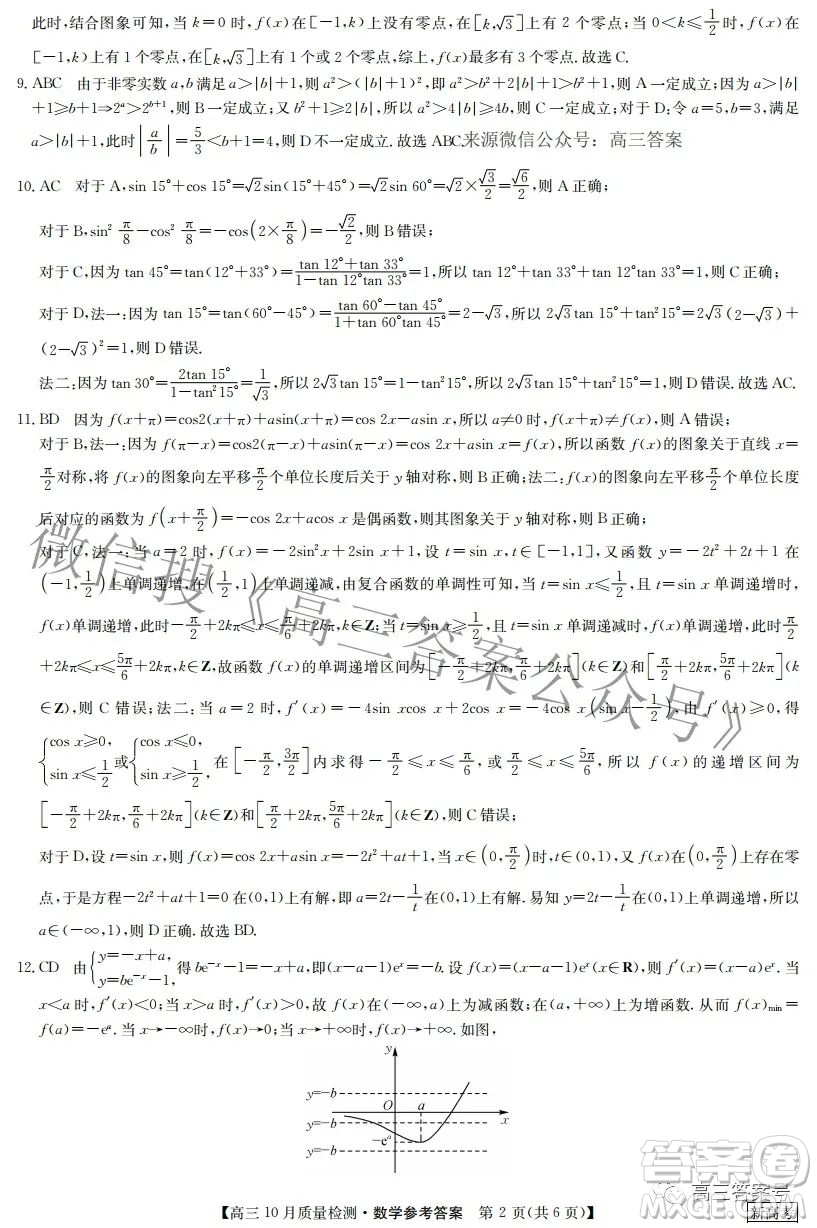 此时,结合图象可知,当 k=0 时,f(x)在[-1,k)上没有零点,在[k,√3]上有 2 个零点;当 0<k≤1/2 时,f(x)在
[-1,k)上有 1 个零点,在[k,√3]上有 1 个或 2 个零点,综上,f(x)最多有 3 个零点.故选 C.
9. ABC 由于非零实数 a,b 满足 a>|b|+1,则 a²>(|b|+1)²,即 a²>b²+2|b|+1>b²+1,则 A 一定成立;因为 a>|b|
+1≥b+1⇒2ᵃ>2ᵇ⁺¹,则 B 一定成立;又 b²+1≥2|b|,所以 a²>4|b|≥4b,则 C 一定成立;对于 D:令 a=5,b=3,满足
a>|b|+1,此时|a/b|=5/3<b+1=4,则 D 不一定成立.故选 ABC.来源微信公众号：高三答案
10. AC 对于 A,sin 15°+cos 15°=√2sin(15°+45°)=√2sin 60°=√2×√3/2=√6/2,则 A 正确;
对于 B,sin² π/8-cos² π/8=-cos(2×π/8)=-√2/2,则 B 错误;
对于 C,因为 tan 45°=tan(12°+33°)=(tan 12°+tan 33°)/(1-tan 12°tan 33°)=1,所以 tan 12°+tan 33°+tan 12°tan 33°=1,则 C 正确;
对于 D,法一:因为 tan 15°=tan(60°-45°)=(tan 60°-tan 45°)/(1+tan 60°tan 45°)=2-√3,所以 2√3tan 15°+tan²15°=2√3(2-√3)+
(2-√3)²=1,则 D 错误.
法二:因为 tan 30°=2tan 15°/(1-tan²15°)=1/√3,所以 2√3tan 15°=1-tan²15°,所以 2√3tan 15°+tan²15°=1.故选 AC.
11. BD 因为 f(x+π)=cos2(x+π)+asin(x+π)=cos 2x-asin x,所以 a≠0 时,f(x+π)≠f(x),则 A 错误;
对于 B,法一:因为 f(π-x)=cos2(π-x)+asin(π-x)=cos 2x+asin x=f(x),所以函数 f(x)的图象关于直线 x=
π/2对称,将 f(x)的图象向左平移π/2个单位长度后关于 y 轴对称,则 B 正确;法二:f(x)的图象向左平移π/2个单位长度
后对应的函数为 f(x+π/2)=-cos 2x+acos x 是偶函数,则其图象关于 y 轴对称,则 B 正确;
对于 C,法一:当 a=2 时,f(x)=-2sin²x+2sin x+1,设 t=sin x,t∈[-1,1],又函数 y=-2t²+2t+1 在
(-1,1/2)上单调递增,在(1/2,1)上单调递减,由复合函数的单调性可知,当 t=sin x≤1/2,且 t=sin x 单调递增时,
f(x)单调递增,此时-π/2+2kπ≤x≤π/6+2kπ,k∈Z;当 t=sin x≥1/2,且 t=sin x 单调递减时,f(x)单调递增,此时π/2
+2kπ≤x≤5π/6+2kπ,k∈Z,故函数 f(x)的单调递增区间为[-π/2+2kπ,π/6+2kπ](k∈Z)和[π/2+2kπ,5π/6+2kπ](k
∈Z),则 C 错误;法二:当 a=2 时,f′(x)=-4sin xcos x+2cos x=-4cos x(sin x-1/2),由 f′(x)≥0,得
{cos x≥0, sin x≤1/2 或{cos x≤0, sin x≥1/2, 在[-π/2,3π/2]内求得-π/2≤x≤π/6,或π/2≤x≤5π/6,所以 f(x)的递增区间为
[-π/2+2kπ,π/6+2kπ](k∈Z)和[π/2+2kπ,5π/6+2kπ](k∈Z),则 C 错误;
对于 D,设 t=sin x,则 f(x)=cos 2x+asin x=-2t²+at+1,当 x∈(0,π/2)时,t∈(0,1),又 f(x)在(0,π/2)上存在零
点,于是方程-2t²+at+1=0 在(0,1)上有解,即 a=2t-1/t在(0,1)上有解.易知 y=2t-1/t在(0,1)上单调递增,所以
a∈(-∞,1),则 D 正确.故选 BD.
12. CD 由{y=-x+a, y=be⁻ˣ-1,得 be⁻ˣ-1=-x+a,即(x-a-1)eˣ=-b.设 f(x)=(x-a-1)eˣ(x∈R),则 f′(x)=(x-a)eˣ.当
x<a 时,f′(x)<0;当 x>a 时,f′(x)>0,故 f(x)在(-∞,a)上为减函数;在(a,+∞)上为增函数.从而 f(x)min=
f(a)=-eᵃ.当 x→-∞时,f(x)→0;当 x→+∞时,f(x)→+∞.如图,
y
y=-b
O a x
y=-b
-eᵃ
y=-b
微信搜《高三答案公众号》
【高三 10 月质量检测·数学参考答案 第 2 页(共 6 页)】
新高考
高三答案号
答案圈
MXQE.COM